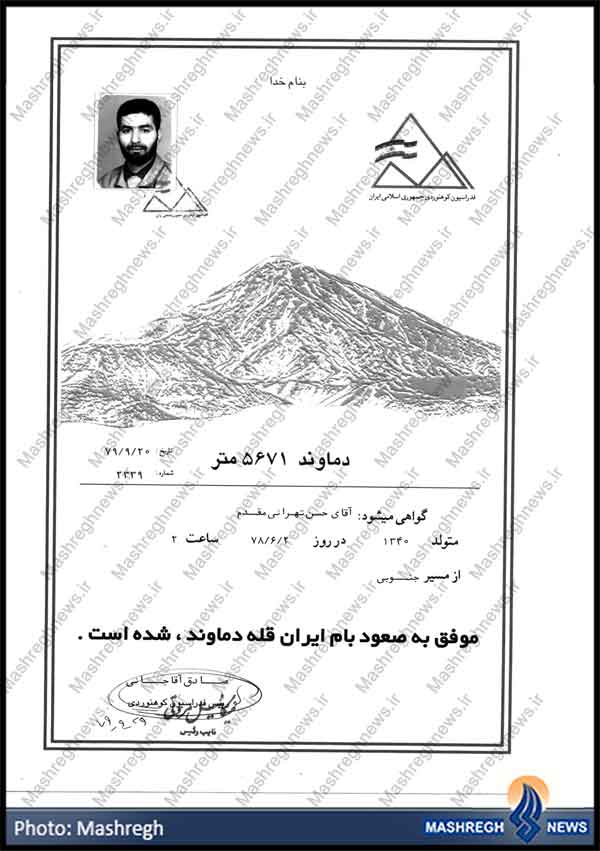 بنام خدا
فدراسیون کوهنوردی جمهوری اسلامی ایران
تاریخ: ۷۹/۹/۲۰
دماوند ۵۶۷۱ متر
شماره: ۲۴۳۹
گواهی میشود: آقای حسن تهرانی مقدم
متولد ۱۳۴۰ در روز ۷۸/۶/۲ ساعت ۲
از مسیر جنوبی
موفق به صعود بام ایران قله دماوند ، شده است .
صادق آقاجانی
رئیس فدراسیون کوهنوردی
نایب رئیس
۷۹,۹,۲۹
Mashreghnews.ir
Photo: Mashregh
MASHREGH NEWS